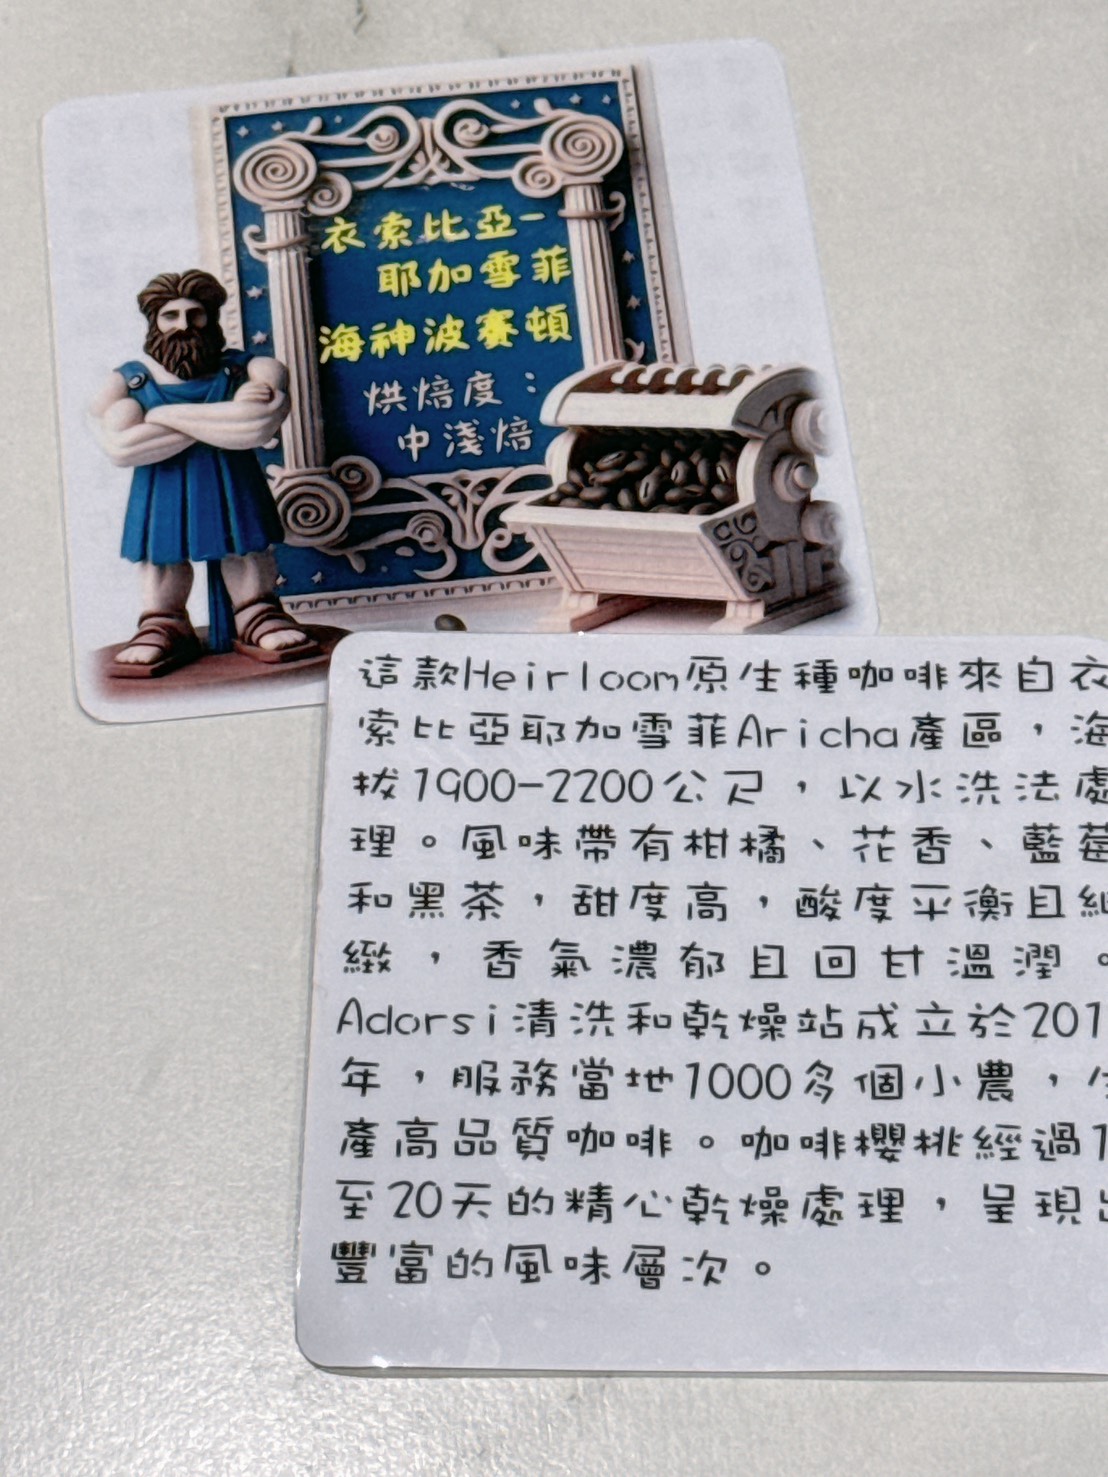 衣索比亞-
耶加雪菲
海神波賽頓
烘焙度：
中淺焙
這款Heirloom原生種咖啡來自衣
索比亞耶加雪菲Aricha產區，海
拔1900-2200公尺，以水洗法處
理。風味帶有柑橘、花香、藍莓
和黑茶，甜度高，酸度平衡且細
緻，香氣濃郁且回甘溫潤。
Adorsi清洗和乾燥站成立於201
年，服務當地1000多個小農，生
產高品質咖啡。咖啡櫻桃經過1
至20天的精心乾燥處理，呈現出
豐富的風味層次。